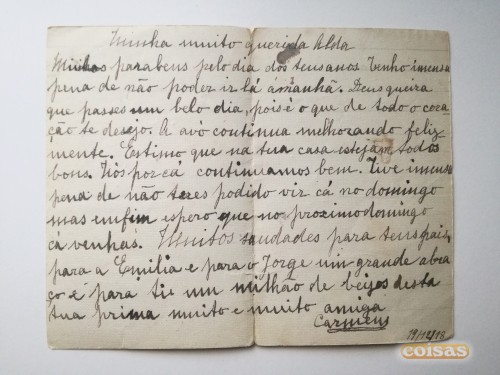 Minha muito querida Alda
Muitos parabens pelo dia dos teus anos. Tenho imensa
pena de não poder ir lá ámanhã. Deus queira
que passes um belo dia, pois é o que de todo o cora-
ção te desejo. A avó continua melhorando feliz-
mente. Estimo que na tua casa estejam todos
bons. Nós por cá continuamos bem. Tive imensa
pena de não teres podido vir cá no domingo
mas emfim espero que no proximo domingo
cá venhas. Muitos saudades para teus pais,
para a Emilia e para o Jorge um grande abra-
ço e para ti um milhão de beijos desta
tua prima muito e muito amiga
coisas